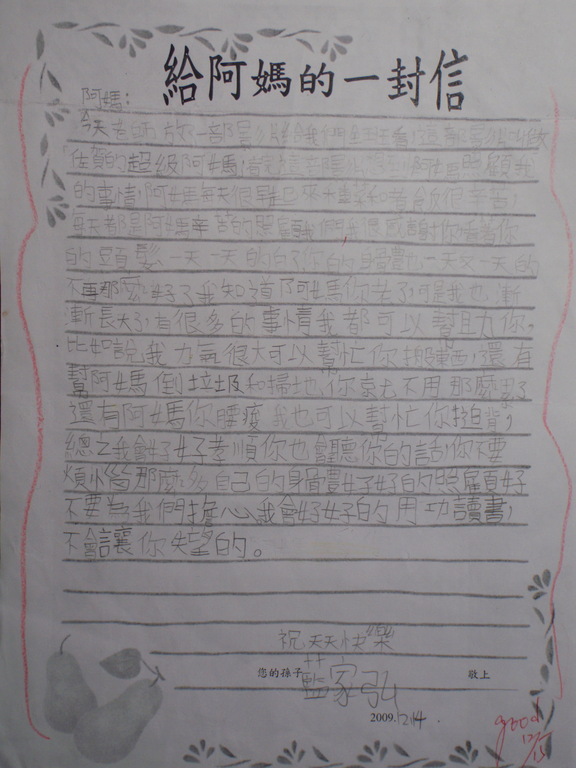 給阿媽的一封信
阿媽:
今天老師放一部影片給我們看,這部影片叫做
佐賀的超級阿媽,看完這部影片想到阿媽照顧我
的事情,阿媽每天很早起來種菜和煮飯很辛苦,
每天都是阿媽辛苦的照顧我們我很感謝你看著你
的頭髮一天一天的白了你的身體也一天又一天的
不再那麼好了我知道阿媽你老了,可是我也漸
漸長大了,有很多的事情我都可以幫助你。
比如說我力氣很大可以幫忙你搬東西,還有
幫阿媽倒垃圾和掃地,你就不用那麼累了
還有阿媽你腰痠我也可以幫忙你搥背,
總之我會好好孝順你也會聽你的話,你不要
煩惱那麼多自己的身體要好好的照顧好
不要為我們擔心,我會好好的用功讀書,
不會讓你失望的。
祝天天快樂
您的孫子 藍家弘 敬上
2009.12.14.
good
12/15